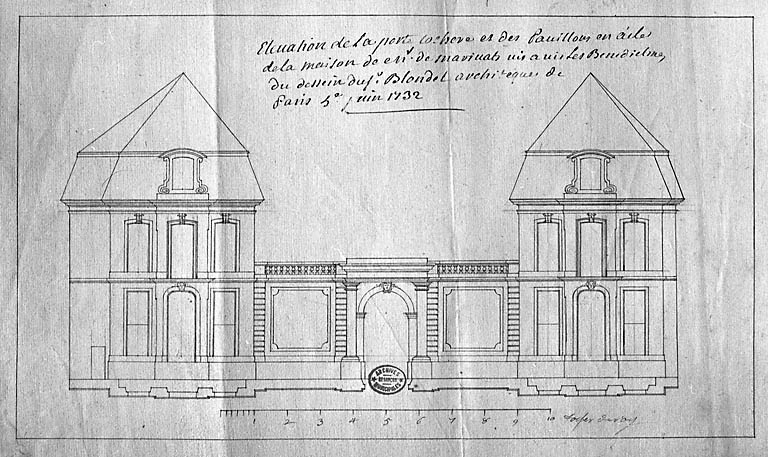 Elevation de la porte cochere et des Pavillons en aile
de la maison de Mr. de marivats vis a vis les Benedictins,
du dessein du sr. Blondel architeque de
Paris 5e juin 1732
ARCHIVES
MUNICIPALES
1 2 3 4 5 6 7 8 9 10